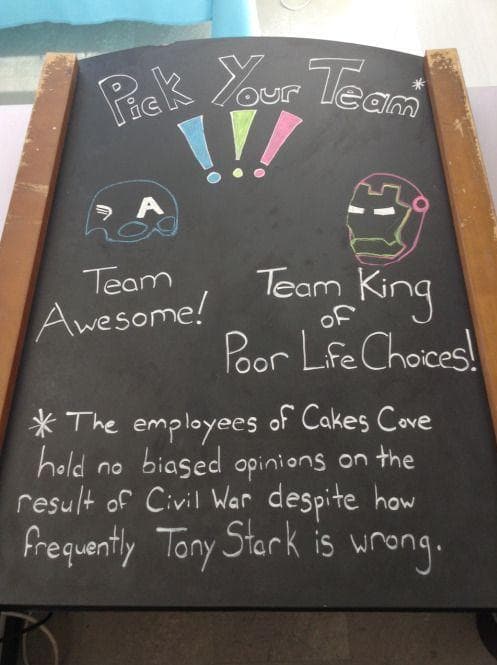 Pick Your Team*
!!!
A
Team
Awesome!
Team King
of
Poor Life Choices!
* The employees of Cakes Cove
hold no biased opinions on the
result of Civil War despite how
frequently Tony Stark is wrong.